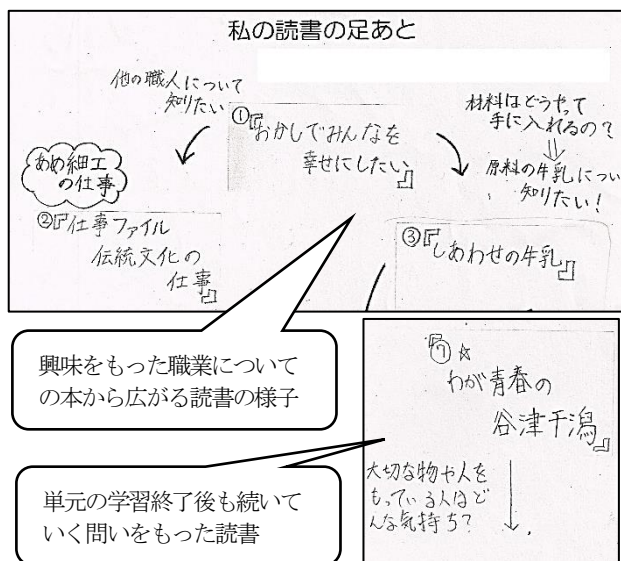 私の読書の足あと
他の職人について
知りたい
①『おかしでみんなを
幸せにしたい』
材料はどうやって
手に入れるの？
⇓
原料の牛乳につい
知りたい！
あめ細工
の仕事
②『仕事ファイル
伝統文化の
仕事』
③『しあわせの牛乳』
興味をもった職業について
の本から広がる読書の様子
⑦☆
『わが青春の
谷津干潟』
大切な物や人を
もっている人はど
んな気持ち？
単元の学習終了後も続いて
いく問いをもった読書